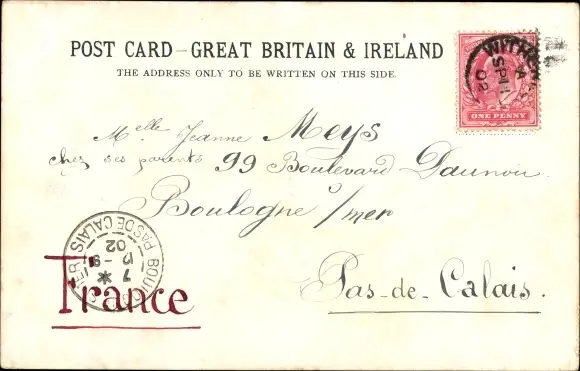 POST CARD – GREAT BRITAIN & IRELAND
THE ADDRESS ONLY TO BE WRITTEN ON THIS SIDE.
SP 11
02
ONE PENNY
Melle Jeanne Meys
chez ses parents 99 Boulevard Daunou
Boulogne s/mer
Pas-de-Calais.
France
PAS DE CALAIS
7
12 - 9
02